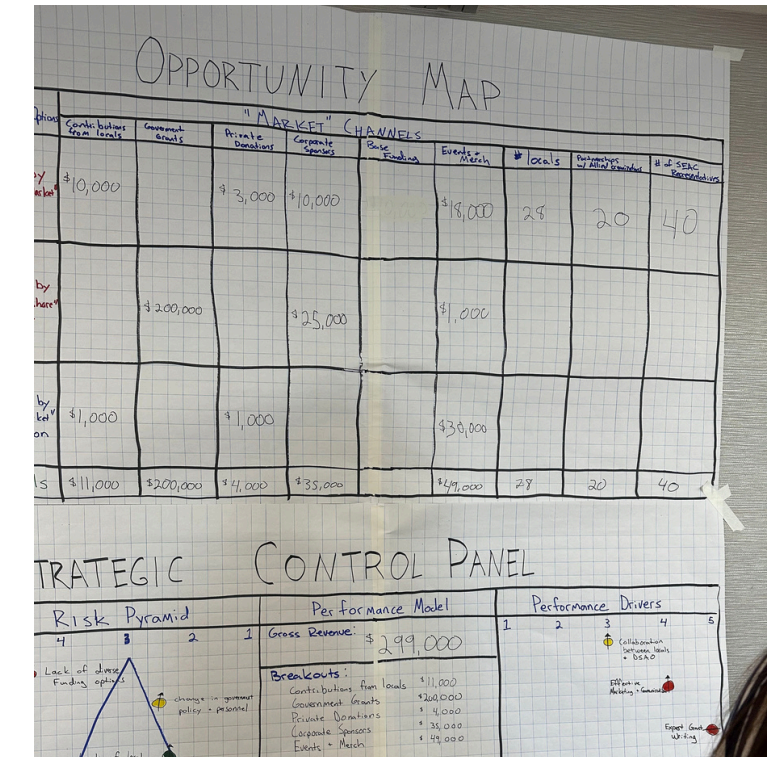 OPPORTUNITY MAP
"MARKET" CHANNELS
Contributions from locals
Government Grants
Private Donations
Corporate Sponsors
Base Funding
Events + Merch
# locals
Partnerships
# of SEAC Representatives
$10,000 $3,000 $10,000 $18,000 28 20 40
by
$200,000 $25,000 $1,000
by
$1,000 $1,000 $30,000
on
ls $11,000 $200,000 $4,000 $35,000 $49,000 28 20 40
TRATEGIC CONTROL PANEL
Risk Pyramid
4 3 2 1
Lack of diverse
Funding options
change in government
policy + pesonnel
Performance Model
Gross Revenue: $299,000
Breakouts:
Contributions from locals $11,000
Government Grants $200,000
Private Donations $4,000
Corporate Sponsors $35,000
Events + Merch $49,000
Performance Drivers
1 2 3 4 5
Collaboration
between locals
+ DSAO
Effective
Marketing +
Expert Grant
Writing